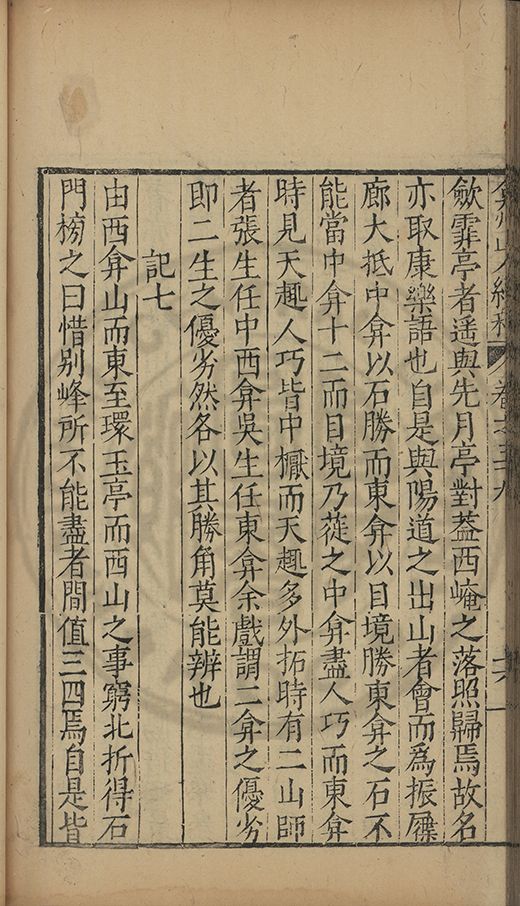 弇州山人續稿 卷之五十九 十六
歛霏亭者遥與先月亭對葢西崦之落照歸焉故名
亦取康樂語也自是與陽道之出山者會而為振屧
廊大抵中弇以石勝而東弇以目境勝東弇之石不
能當中弇十二而目境乃蓰之中弇盡人巧而東弇
時見天趣人巧皆中櫽而天趣多外拓時有二山師
者張生任中西弇吳生任東弇余戲謂二弇之優劣
即二生之優劣然各以其勝角莫能辨也
記七
由西弇山而東至環玉亭而西山之事窮北折得石
門榜之曰惜别峰所不能盡者間值三四焉自是皆